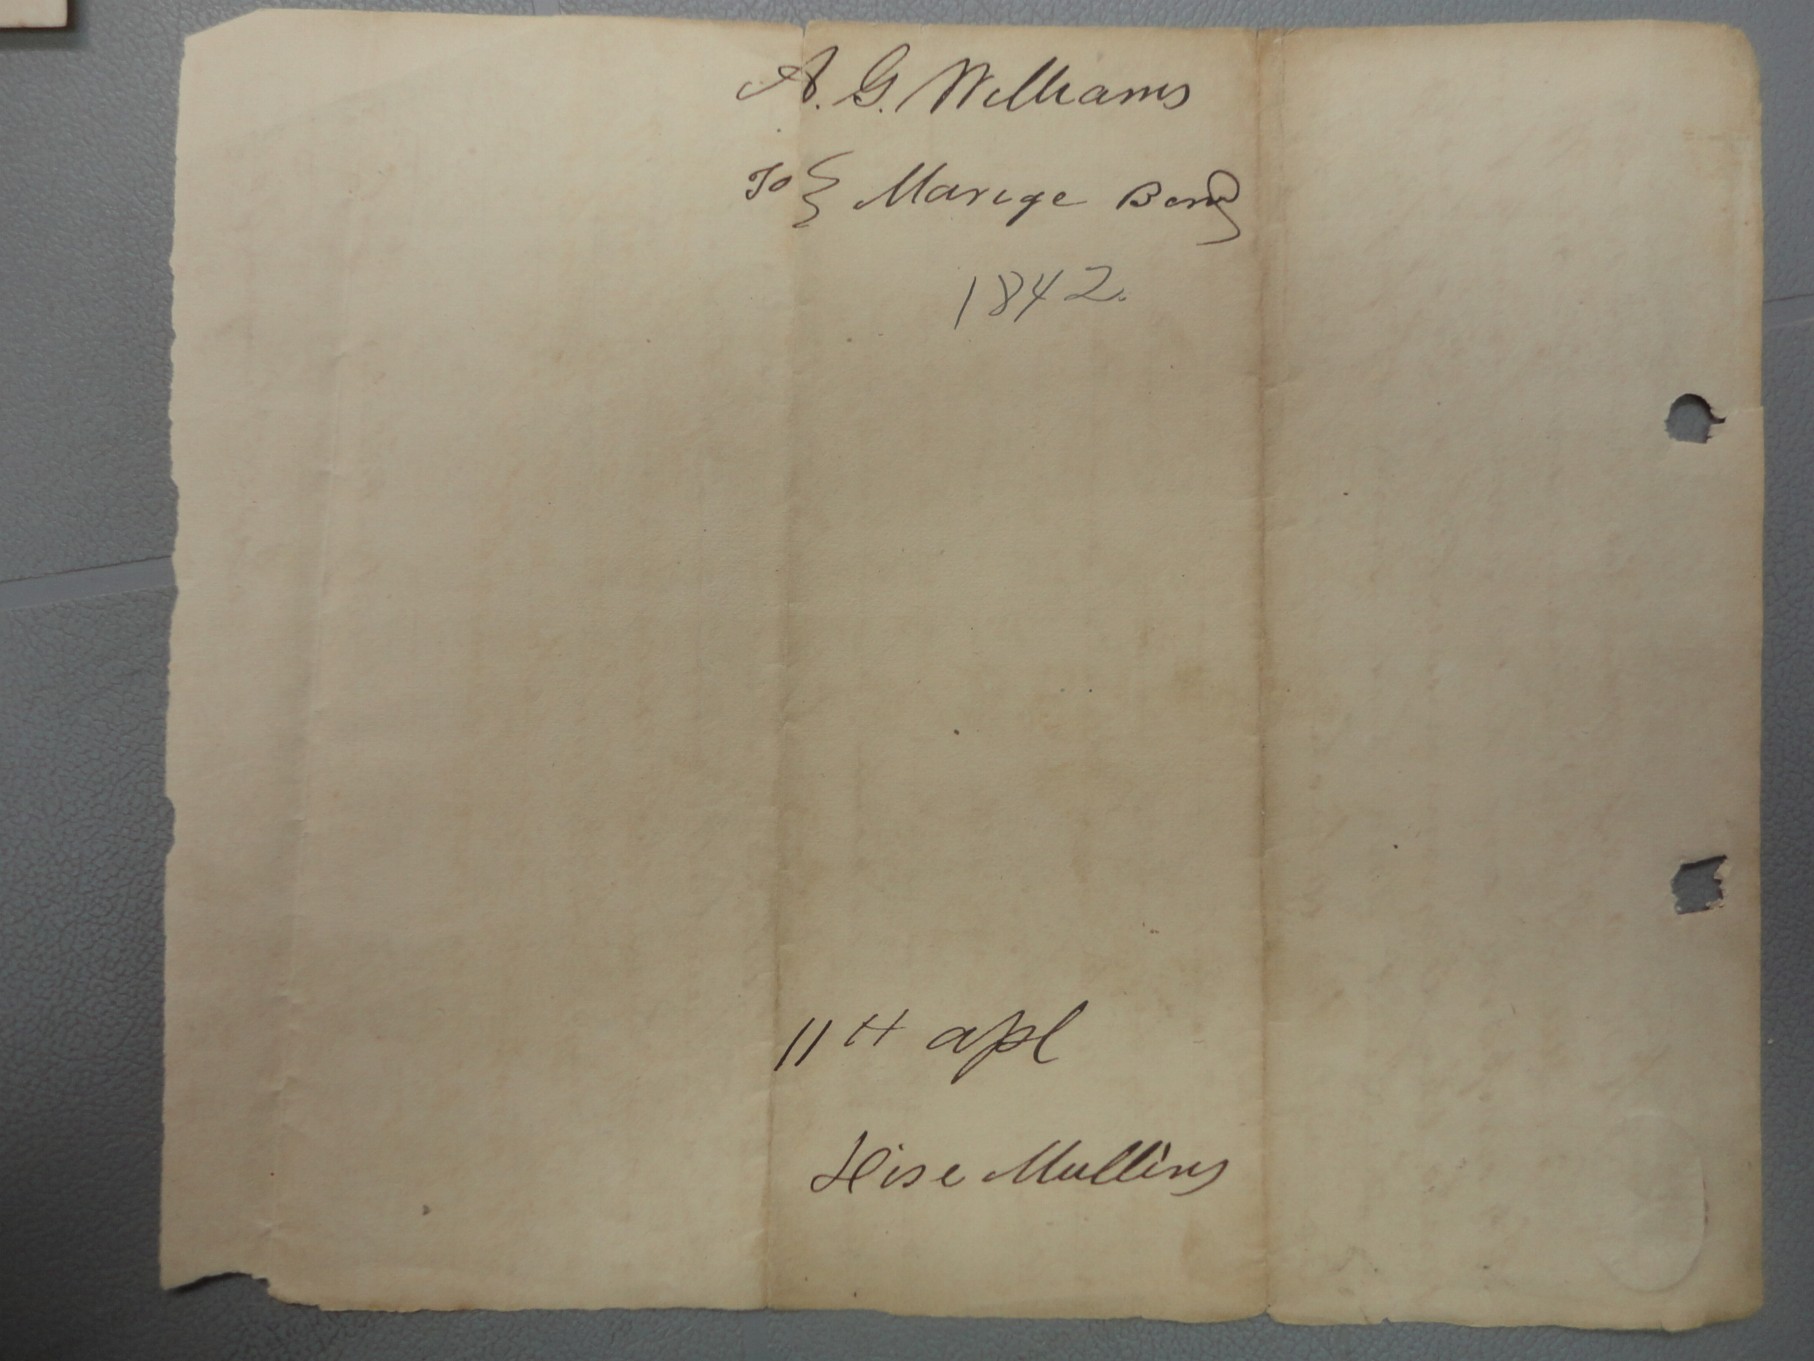 A. G. Williams
To } Marige Bond
1842.
11th apl
Hise Mullins